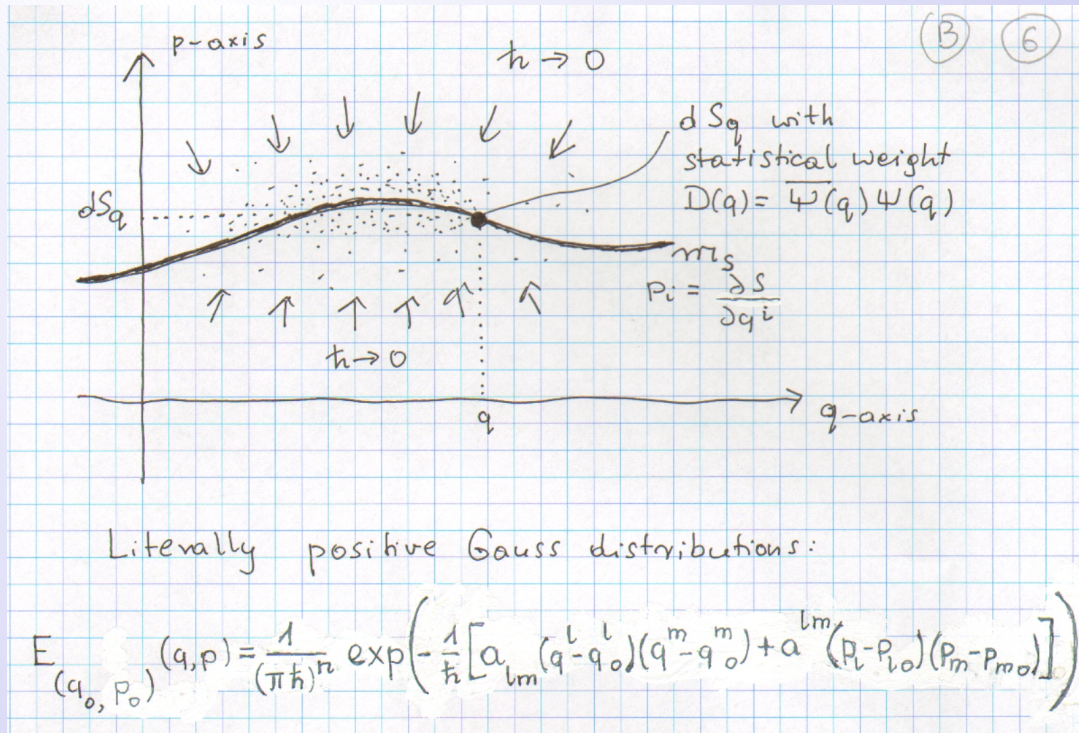 B 6
p-axis
ħ → 0
dSq with
statistical weight
D(q) = Ψ̅(q) Ψ(q)
dSq
ms
pi = ∂S/∂qⁱ
ħ → 0
q
q-axis
Literally positive Gauss distributions:
E(q₀, p₀) (q,p) = 1/(πħ)ⁿ exp(-1/ħ [a_lm (q^l - q^l_0)(q^m - q^m_0) + a^lm (p_l - p_l0)(p_m - p_m0)])